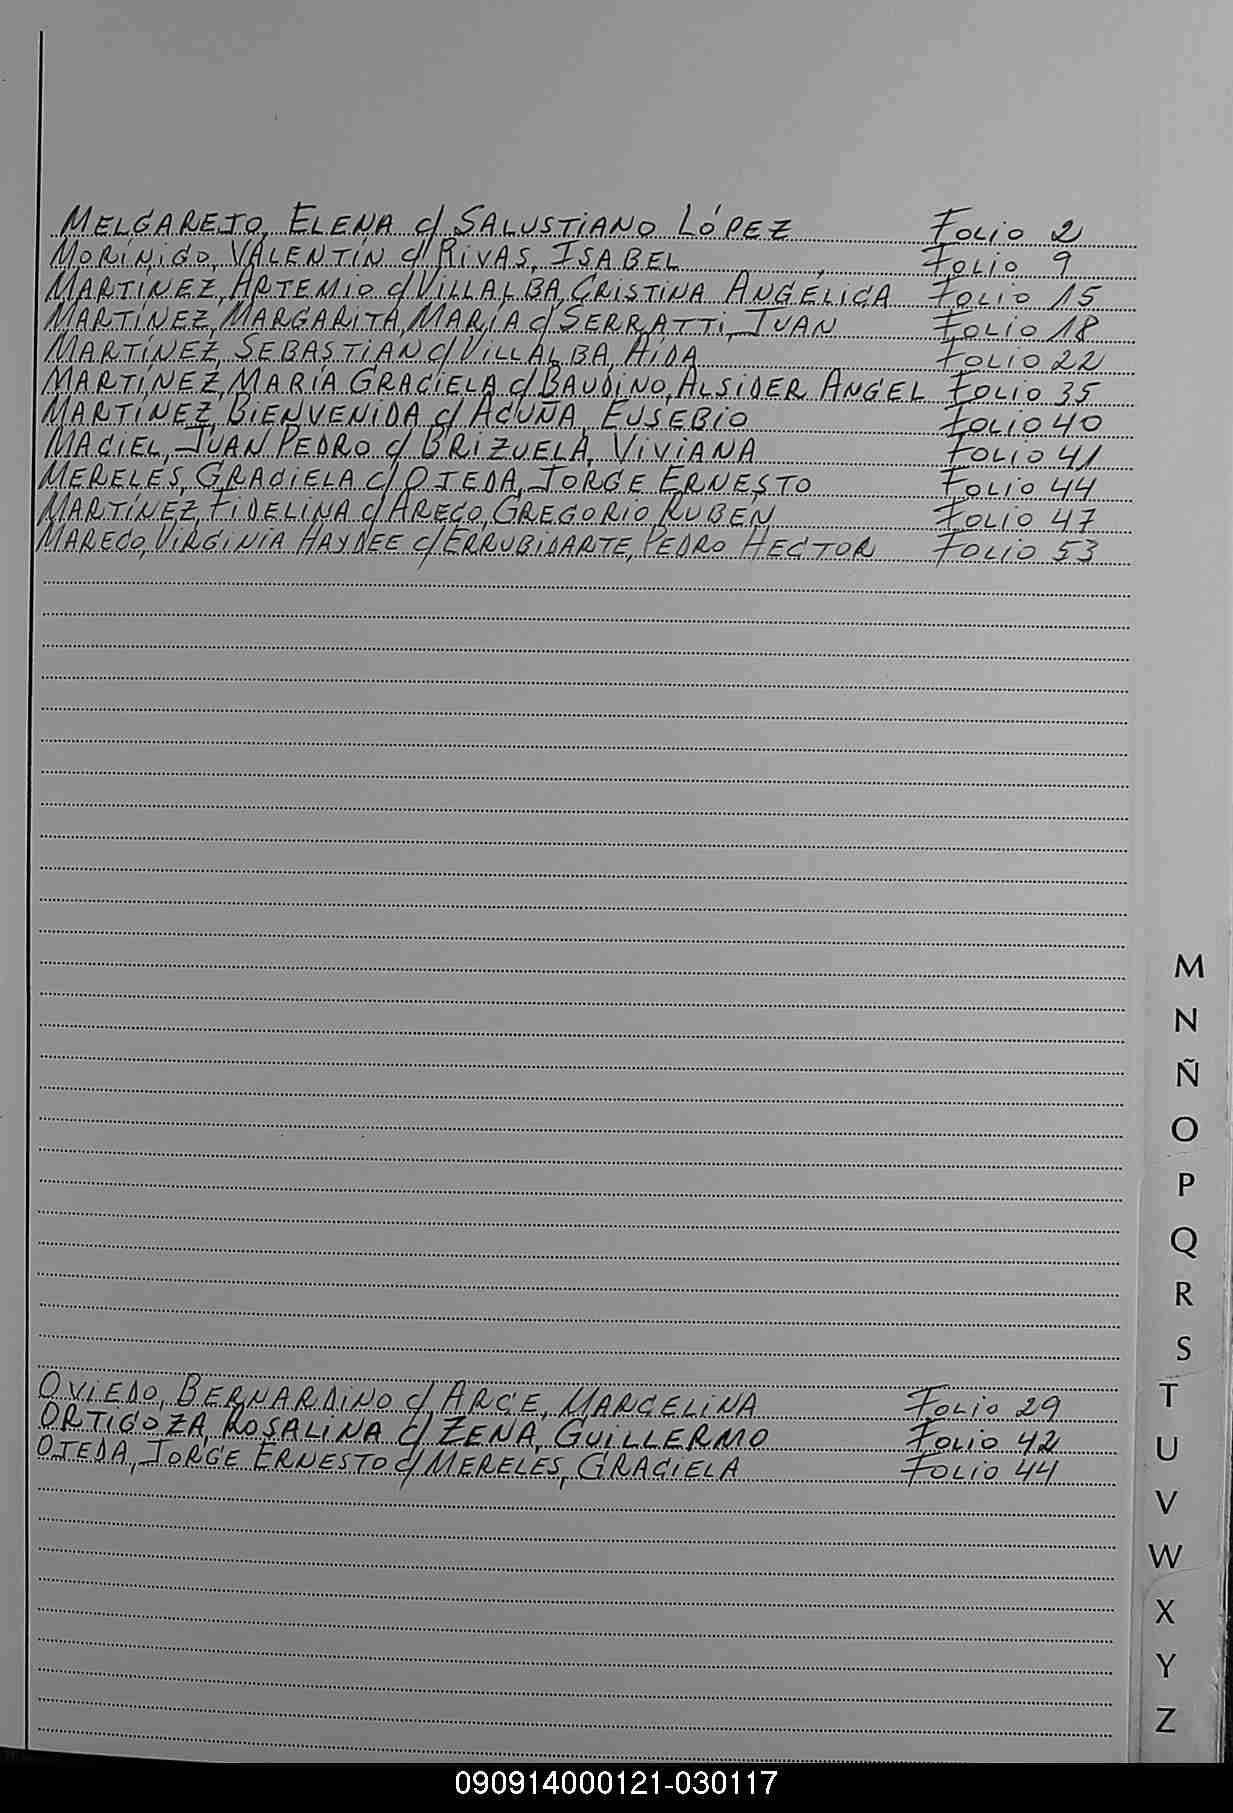 MELGAREJO, ELENA c/ SALUSTIANO LÓPEZ Folio 2
MORÍNIGO, VALENTÍN c/ RIVAS, ISABEL Folio 9
MARTÍNEZ, ARTEMIO c/ VILLALBA, CRISTINA ANGÉLICA Folio 15
MARTÍNEZ, MARGARITA MARÍA c/ SERRATTI, JUAN Folio 18
MARTÍNEZ, SEBASTIÁN c/ VILLALBA, AÍDA Folio 22
MARTÍNEZ, MARÍA GRACIELA c/ BAUDINO, ALSIDER ANGEL Folio 35
MARTÍNEZ, BIENVENIDA c/ ACUÑA, EUSEBIO Folio 40
MACIEL, JUAN PEDRO c/ BRIZUELA, VIVIANA Folio 41
MERELES, GRACIELA c/ OJEDA, JORGE ERNESTO Folio 44
MARTÍNEZ, FIDELINA c/ ARECO, GREGORIO RUBEN Folio 47
MARECO, VIRGINIA HAYDEE c/ ERRUBIDARTE, PEDRO HECTOR Folio 53
M
N
Ñ
O
P
Q
R
S
OVIEDO, BERNARDINO c/ ARCE, MARCELINA Folio 29
T
ORTIGOZA, ROSALINA c/ ZENA, GUILLERMO Folio 42
U
OJEDA, JORGE ERNESTO c/ MERELES, GRACIELA Folio 44
V
W
X
Y
Z
090914000121-030117